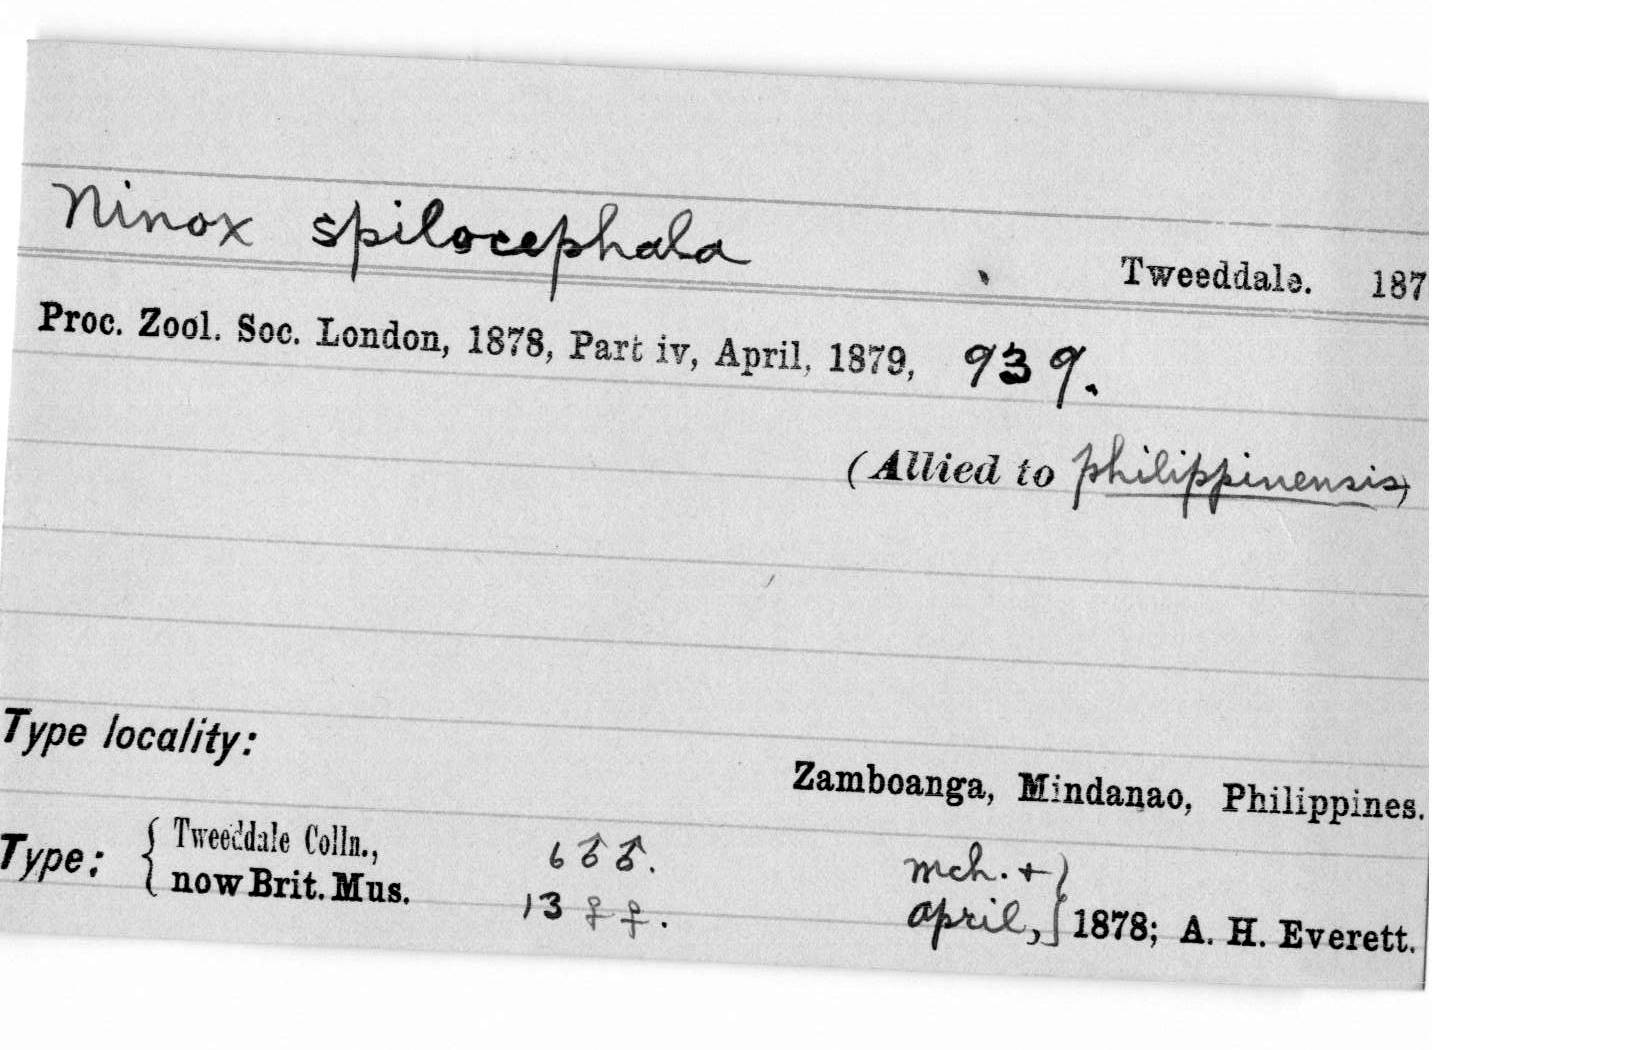 Ninox spilocephala Tweeddale. 187
Proc. Zool. Soc. London, 1878, Part iv, April, 1879, 939.
(Allied to philippinensis)
Type locality:
Zamboanga, Mindanao, Philippines.
Type: { Tweeddale Colln., 6 ♂♂. mch. + }
now Brit. Mus. 13 ♀♀. april, } 1878; A. H. Everett.